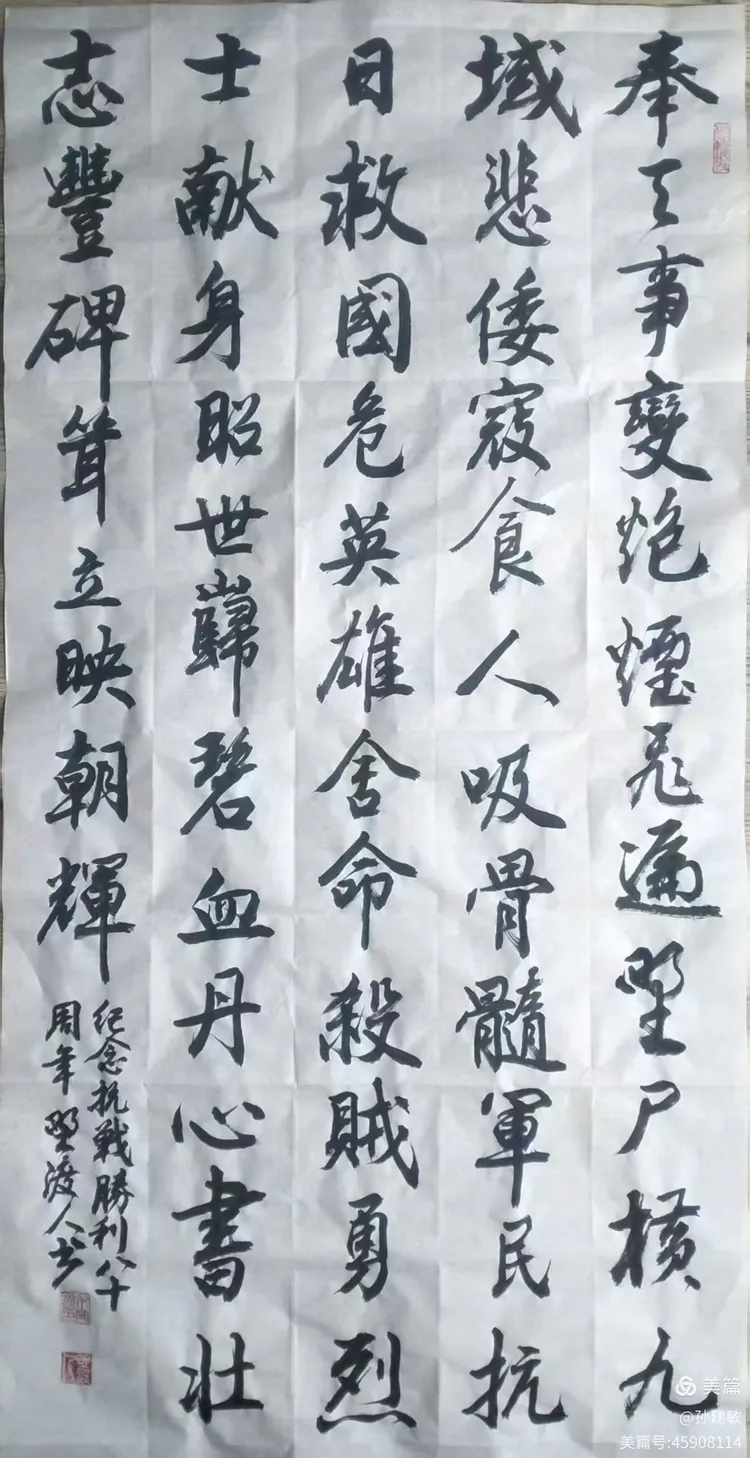 奉天事變炮煙飛遍野尸橫九
域悲倭寇食人吸骨髓軍民抗
日救國危英雄舍命殺賊勇烈
士献身昭世巋碧血丹心書壯
志豐碑耸立映朝輝
紀念抗戰勝利八十
周年野渡人书
美篇
@孙建敏
美篇号:45908114